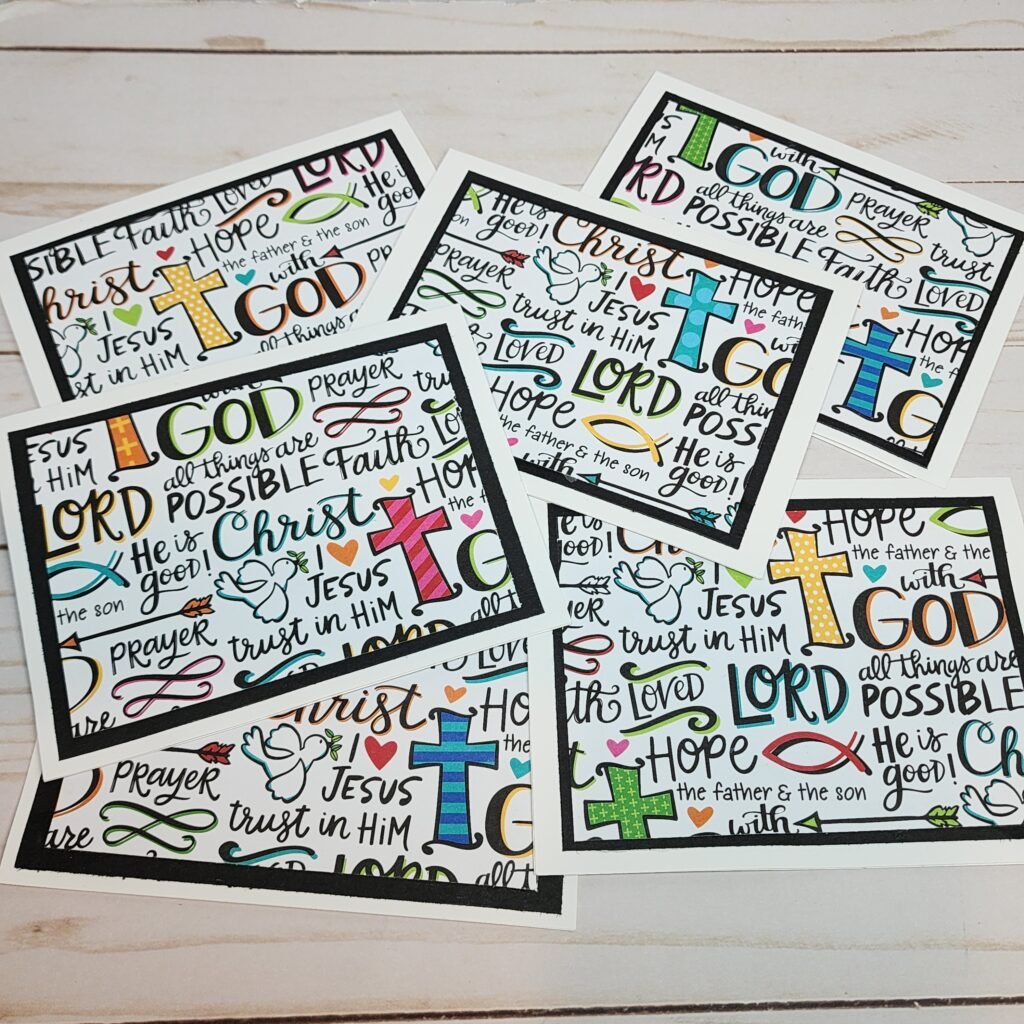 LORD
Faith Loved
He is
good
HOPE
the father & the son
with
GOD
Christ
I
JESUS
trust in HiM
all things are
with
GOD
PRAYER
all things are
POSSIBLE
trust
Faith
LOVED
the
He is
good!
Christ
HOPE
PRAYER
I
JESUS
trust in HiM
LOVED
LORD
HOPE
the father & the son
with
He is
good!
GOD
PRAYER
JESUS
HiM
all things are
POSSIBLE Faith
LORD
He is
good!
Christ
HOP
the f
I
JESUS
the son
PRAYER
trust in HiM
are
all t
Christ
I
HO
the
PRAYER
JESUS
are
trust in HiM
LORD
all t
HOPE
the father & the
I
with
JESUS
GOD
trust in HiM
all things are
LOVED
LORD
POSSIBLE
HOPE
He is
good!
the father & the son
with